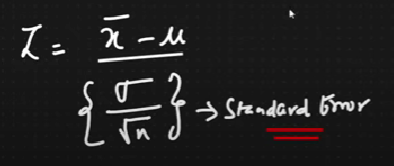 Z = x̄ - μ
{ σ / √n } → Standard Error